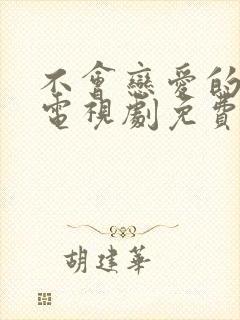 不會戀愛的
電視劇免費
胡建華